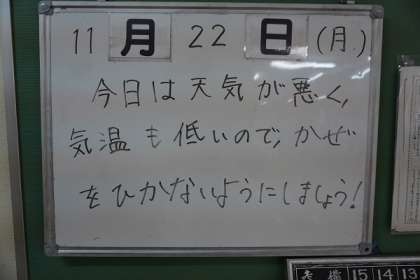 11 月 22 日 (月)
今日は天気が悪く,
気温も低いので,かぜ
をひかないようにしましょう!
15 14 13